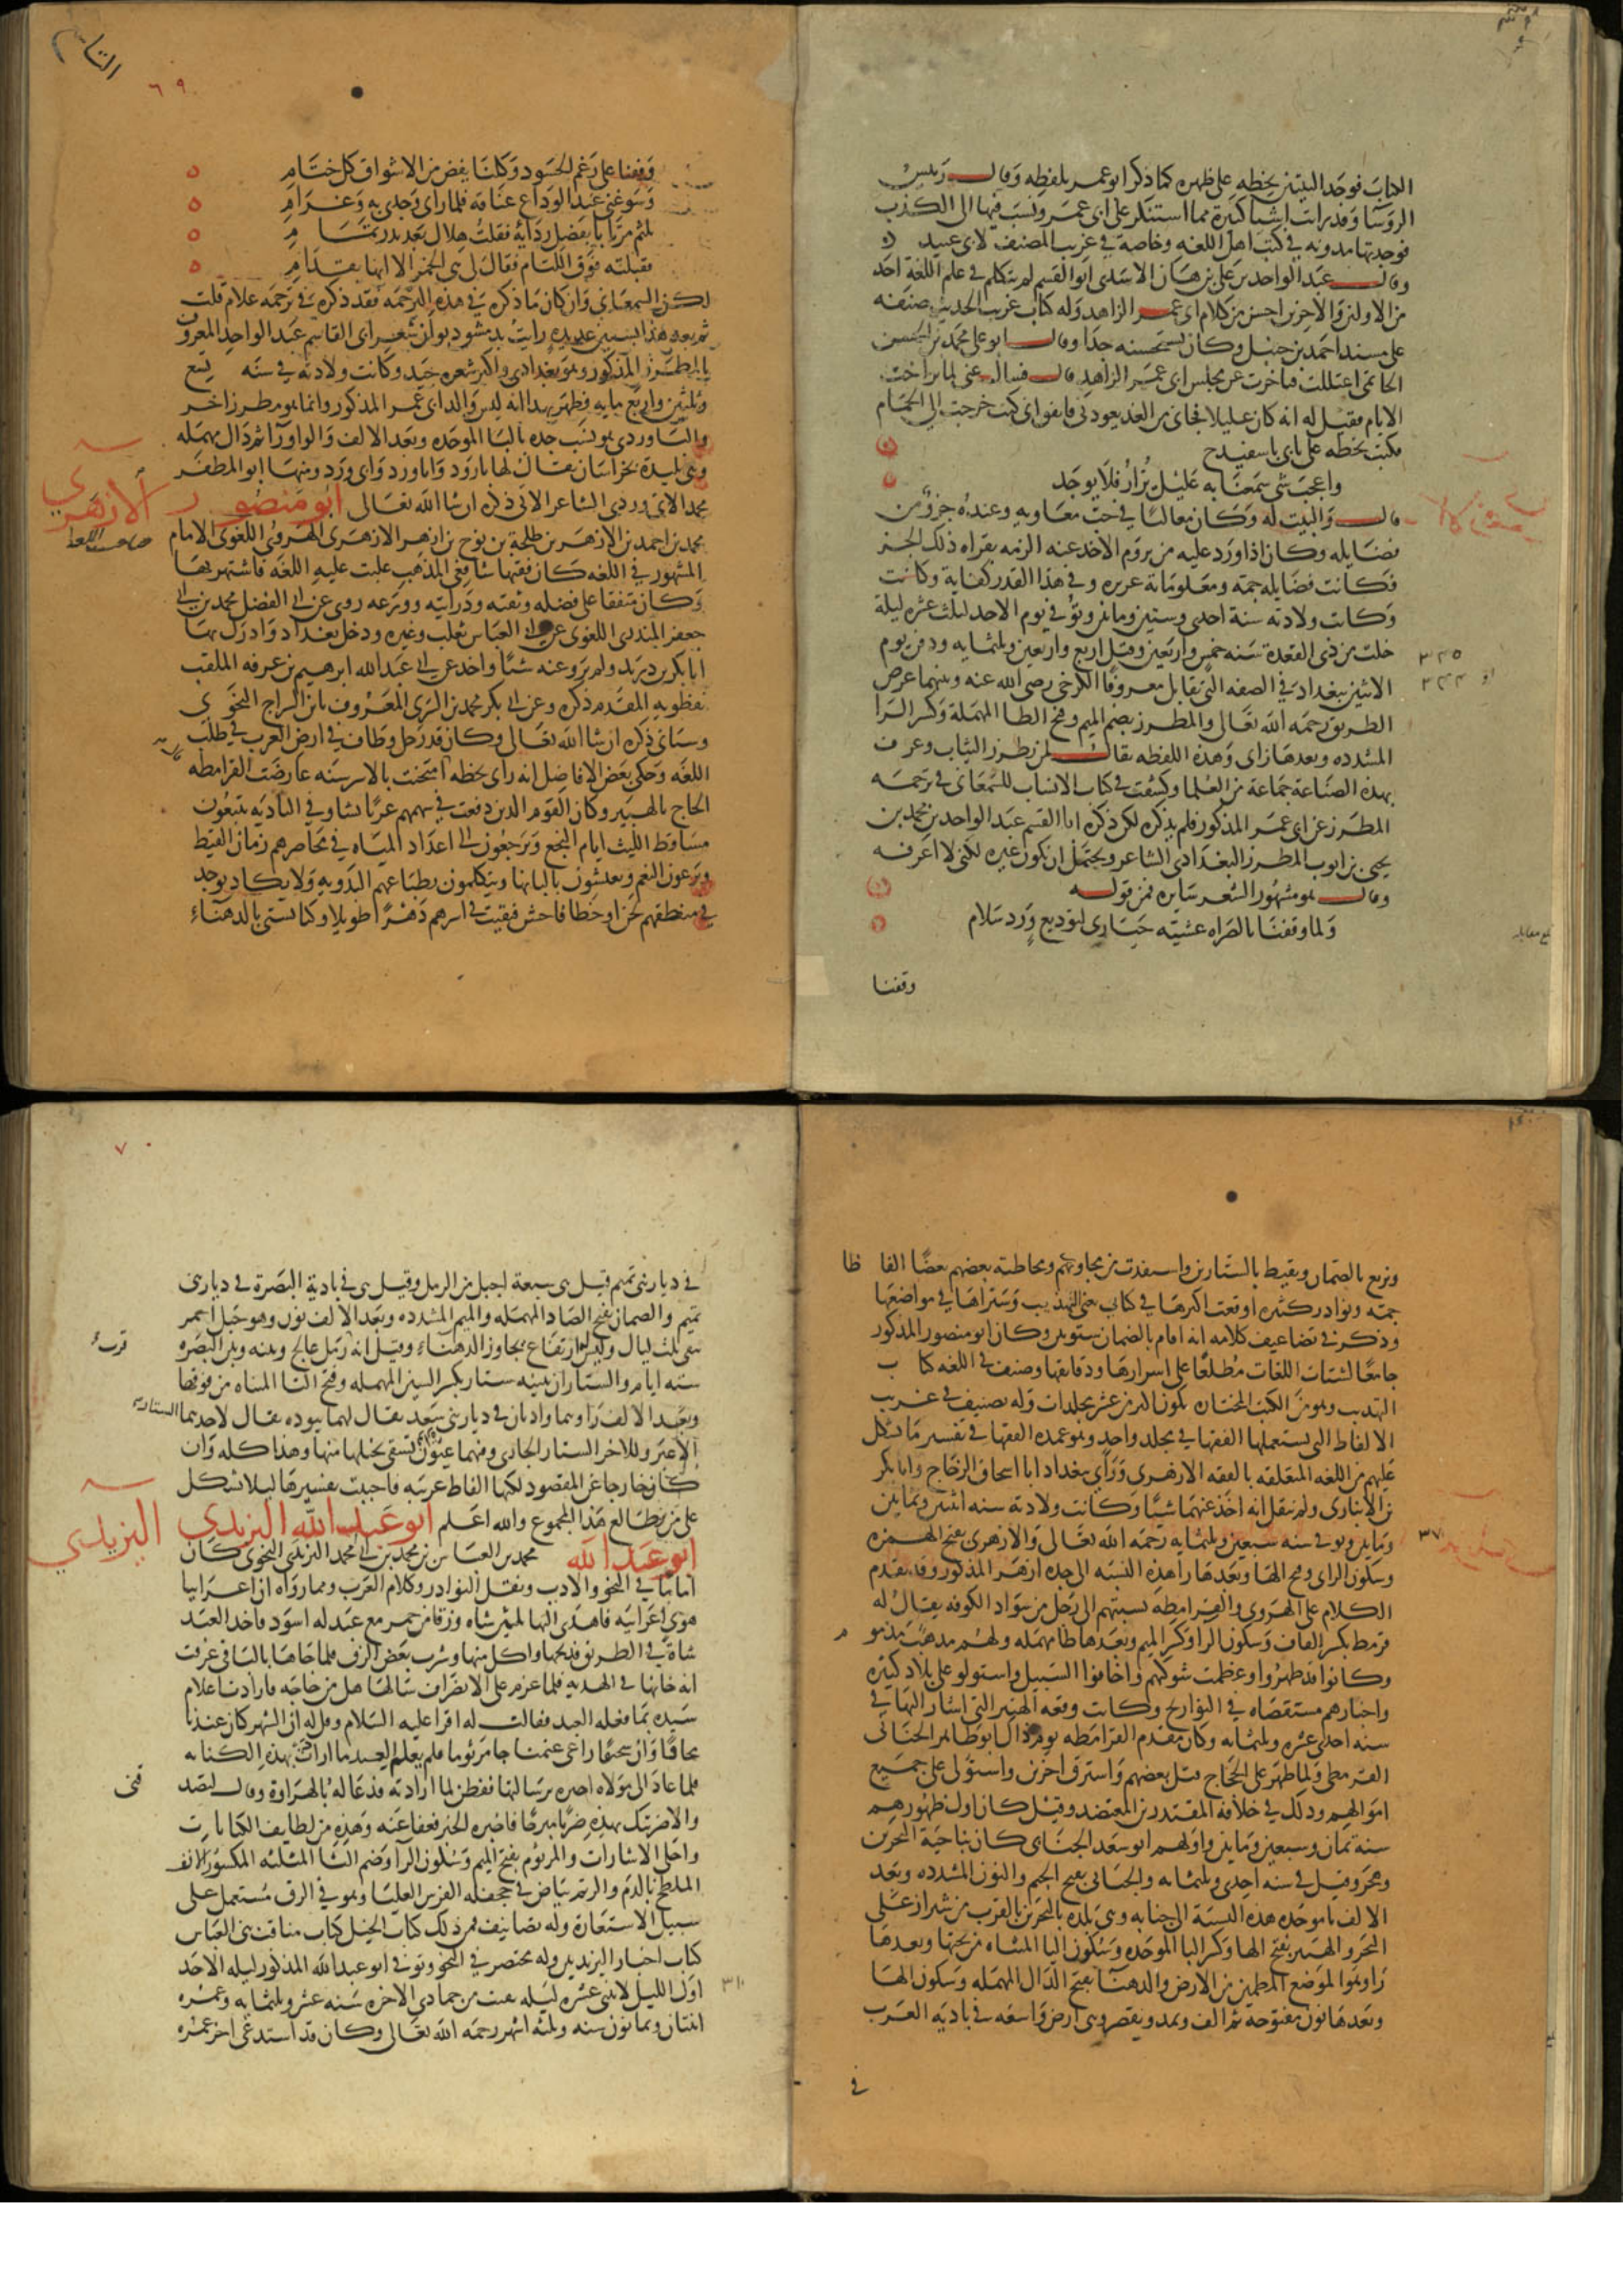 الكتاب فوجد البيتين بخطه على ظهره كما ذكر ابو عمر بلفظه وقال رييس
الروسا وقد رات اشيا كثيرة مما استنكر على ابى عمر ونسب فيها الى الكذب
فوجدتها مدونه في كتب اهل اللغه وخاصة في غريب المصنف لابى عبيد
وقال عبد الواحد بن على بن برهان الاسدى ابو القسم لم يتكلم في علم اللغة احد
من الاولين والاخرين احسن من كلام ابى عمر الزاهد وله كتاب غريب الحديث صنفه
على مسند احمد بن حنبل وكان يستحسنه جدا وقال ابو على محمد بن الحسن
الحاتمى اعتللت فتاخرت عن مجلس ابى عمر الزاهد قال فسال عنى لما تراخت
الايام فقيل له انه كان عليلا فجاى من الغد يعودنى فاتفق انى كنت خرجت الى الحمام
فكتب بخطه على بابى باسفيداج
واعجب شى سمعنا به عليل يزار فلا يوجد
قال والبيت له وكان مغاليا في حب معاويه وعنده جزؤ من
فضايله وكان اذا ورد عليه من يروم الاخذ عنه الزمه بقراه ذلك الجز
فكانت فضايله جمة ومعلوماته غزيره وفي هذا القدر كفاية وكانت
وكانت ولادته سنة احدى وستين ومايتين وتوفي يوم الاحد لثلث عشره ليلة
خلت من ذى القعدة سنه خمس واربعين وقيل اربع واربعين وثلثمايه ودفن يوم
٣٤٥
٣٤٤
الاثنين ببغداد في الصفه التى تقابل معروفا الكرخى رضى الله عنه وبينهما عرض
الطريق رحمه الله تعالى والمطرز بضم الميم وفتح الطا المهملة وكسر الرا
المشدده وبعدها زاى وهذه اللفظه تقال لمن يطرز الثياب وعرف
بهذه الصناعة جماعة من العلما وكشفت في كتاب الانساب للسمعانى في ترجمه
المطرز عن ابى عمر المذكور فلم يذكره لكن ذكر ابا القسم عبد الواحد بن محمد بن
يحيى بن ايوب المطرز البغدادى الشاعر ويحتمل ان يكون غيره لكنى لا اعرفه
وقال هو مشهور الشعر سايره فمن قوله
ولما وقفنا بالصراه عشيته حيارى لتوديع ورد سلام
بلغ مقابله
وقفنا
٦٩
وقفنا على رغم الحسود وكلنا يفض من الاشواق كل ختام
وسوغنى عند الوداع عناقه فلما راى وجدى به وغرام
تلثم مرتابا بفضل ردايه فقلت هلال بعد بدر تمام
فقبلته فوق اللثام فقال لى هى الخمر الا انها بفدام
لكن السمعانى وان كان ما ذكره في هذه الترجمه فقد ذكره في ترجمه غلام قلت
ثم بعد هذا بسنين عديده رايت بدمشق ديوان شعر ابى القاسم عبد الواحد المعروف
بالمطرز المذكور وهو بغدادى واكثر شعره جيد وكانت ولادته في سنه تسع
وثلثين واربع مايه فظهر بهذا انه ليس والد ابى عمر المذكور وانما هو مطرز اخر
والباوردى هو نسب جده بالبا الموحده وبعد الالف والواو را ثم دال مهمله
وهى بليدة بخراسان يقال لها باورد وابا ورد وابى ورد ومنها ابو المظفر
محمد الابيوردى الشاعر الاتى ذكره ان شا الله تعالى ابو منصور
الازهرى
صاحب اللغه
محمد بن احمد بن الازهر بن طلحة بن نوح بن ازهر الازهرى الهروى اللغوى الامام
المشهور في اللغه كان فقيها شافعى المذهب غلبت عليه اللغه فاشتهر بها
وكان متفقا على فضله وثقته ودرايته وورعه روى عن ابى الفضل محمد بن ابى
جعفر المنذرى اللغوى عن ابى العباس ثعلب وغيره ودخل بغداد وادرك بها
ابا بكر بن دريد ولم يرو عنه شيا واخذ عن ابى عبد الله ابرهيم بن عرفه الملقب
نفطويه المقدم ذكره وعن ابى بكر محمد بن السرى المعروف بابن السراج النحوى
وسياتى ذكره ان شا الله تعالى وكان قد رحل وطاف في ارض العرب في طلب
اللغه وحكى بعض الافاضل انه راى بخطه امتحنت بالاسر سنه عارضت القرامطه
الحاج بالهبير وكان القوم الذين وقعت في سهمهم عربا نشاو في الباديه يتبعون
مساقط الغيث ايام النجع ويرجعون الى اعداد المياه في محاضرهم زمان القيظ
ويرعون النعم ويعيشون بالبانها ويتكلمون بطباعهم البدويه ولا يكاد يوجد
في منطقهم لحن او خطا فاحش فبقيت في اسرهم دهرا طويلا وكنا نشتى بالدهناء
ونربع بالصمان ونقيظ بالستارين واستفدت من مجاورتهم ومخاطبة بعضهم بعضا الفاظا
جمه ونوادر كثيره اوقعت اكثرها في كتابى يعنى التهذيب وستراها في مواضعها
وذكر في تضاعيف كلامه انه اقام بالصمان شتوتين وكان ابو منصور المذكور
جامعا لشتات اللغات مطلعا على اسرارها ودقايقها وصنف في اللغه كتاب
التهذيب وهو من الكتب المختاره يكون اكثر من عشر مجلدات وله تصنيف في غريب
الالفاظ التى يستعملها الفقها في مجلد واحد وهو عمده الفقها في تفسير ما يشكل
عليهم من اللغه المتعلقه بالفقه الازهرى وراى ببغداد ابا اسحاق الزجاج وابا بكر
بن الانبارى ولم ينقل انه اخذ عنهما شيا وكانت ولادته سنه اثنين وثمانين
ومايتين وتوفى سنه سبعين وثلثمايه رحمه الله تعالى والازهرى بفتح الهمزه
٣٧٠
وسكون الزاى وفتح الها وبعدها را هذه النسبه الى جده ازهر المذكور وقد تقدم
الكلام على الهروى والقرامطه نسبتهم الى رجل من سواد الكوفه يقال له
قرمط بكسر القاف وسكون الرا وكسر الميم وبعدها طا مهمله ولهم مذهب مذموم
وكانوا قد ظهروا وعظمت شوكتهم واخافوا السبيل واستولو على بلاد كثيره
واخبارهم مستقصاه في التواريخ وكانت وقعه الهبير التى اشار اليها في
سنه احدى عشره وثلثمايه وكان مقدم القرامطه يومذاك ابو طاهر الجنابى
القرمطى ولما ظهر على الحجاج قتل بعضهم واسترق اخرين واستولى على جميع
اموالهم وذلك في خلافه المقتدر بن المعتضد وقيل كان اول ظهورهم
سنة ثمان وسبعين ومايتين واولهم ابو سعد الجنابى كان بناحية البحرين
وهجر وقيل في سنه احدى وثلثمايه والجنابى بفتح الجيم والنون المشدده وبعد
الالف با موحده هذه النسبة الى جنابه وهى بلده بالبحرين بالقرب من شيراز على
البحر والهبير بفتح الها وكسر البا الموحده وسكون اليا المثناه من تحتها وبعدها
را وهو الموضع المطمين من الارض والدهنا بفتح الدال المهمله وسكون الها
وبعدها نون مفتوحه ثم الف وتمد وتقصر وهى ارض واسعه في باديه العرب
في
٧٠
في ديار بنى تميم قيل هى سبعة اجبل من الرمل وقيل هى في بادية البصرة في ديار بنى
تميم والصمان بفتح الصاد المهمله والميم المشدده وبعد الالف نون وهو جبل احمر
ينقى ثلث ليال وليس له ارتفاع مجاور الدهناء وقيل انه رمل عالج وبينه وبين البصره
سته ايام والستاران تثنيه ستار بكسر السين المهمله وفتح التا المثناه من فوقها
وبعد الالف را وهما واديان في ديار بنى سعد يقال لهما سوده يقال لاحدهما الستار
الاغبر وللاخر الستار الجابرى وفيهما عيون تسقى نخيلها منها وهذا كله وان
كان خارجا عن المقصود لكنها الفاظ غريبه فاحببت تفسيرها ليلا تشكل
على من يطالع هذا المجموع والله اعلم ابو عبد الله اليزيدي
اليزيدي
ابو عبد الله محمد بن العباس بن محمد بن ابى محمد اليزيدى النحوى كان
اماما في النحو والادب ونقل النوادر وكلام العرب ومما رواه ان اعرابيا
هوى اعرابيه فاهدى اليها ثلثين شاه وزقا من خمر مع عبد له اسود فاخذ العبد
شاة في الطريق فذبحها واكل منها وشرب بعض الزق فلما جاها بالباقى عرفت
انه خانها في الهديه فلما عزم على الانصراف سالها هل من حاجه فارادت اعلام
سيده بما فعله العبد فقالت له اقرا عليه السلام وقل له ان الشهر كان عندنا
محاقا وان سحيما راعى غنمنا جا مرثوما فلم يعلم العبد ما ارادت بهذه الكنايه
فلما عاد الى مولاه اخبره برسالتها ففطن لما ارادته فدعا له بالهراوة وقال لتصدقنى
والا ضربتك بهذه ضربا مبرحا فاخبره الخبر فعفا عنه وهذه من لطايف الكنايات
واحلى الاشارات والمرثوم بفتح الميم وسكون الرا وضم الثا المثلثه المكسور الانف
الملطخ بالدم والرثم بياض في جحفله الفرس العليا وهو في الزق مستعمل على
سبيل الاستعارة وله تصانيف فمن ذلك كتاب الخيل كتاب مناقب بنى العباس
كتاب اخبار اليزيديين وله مختصر في النحو وتوفى ابو عبد الله المذكور ليله الاحد
اول الليل لاثنى عشره ليله بقيت من جمادى الاخره سنه عشر وثلثمايه وعمره
٣١٠
اثنتان وثمانون سنه وثلثه اشهر رحمه الله تعالى وكان قد استدعى اخر عمره